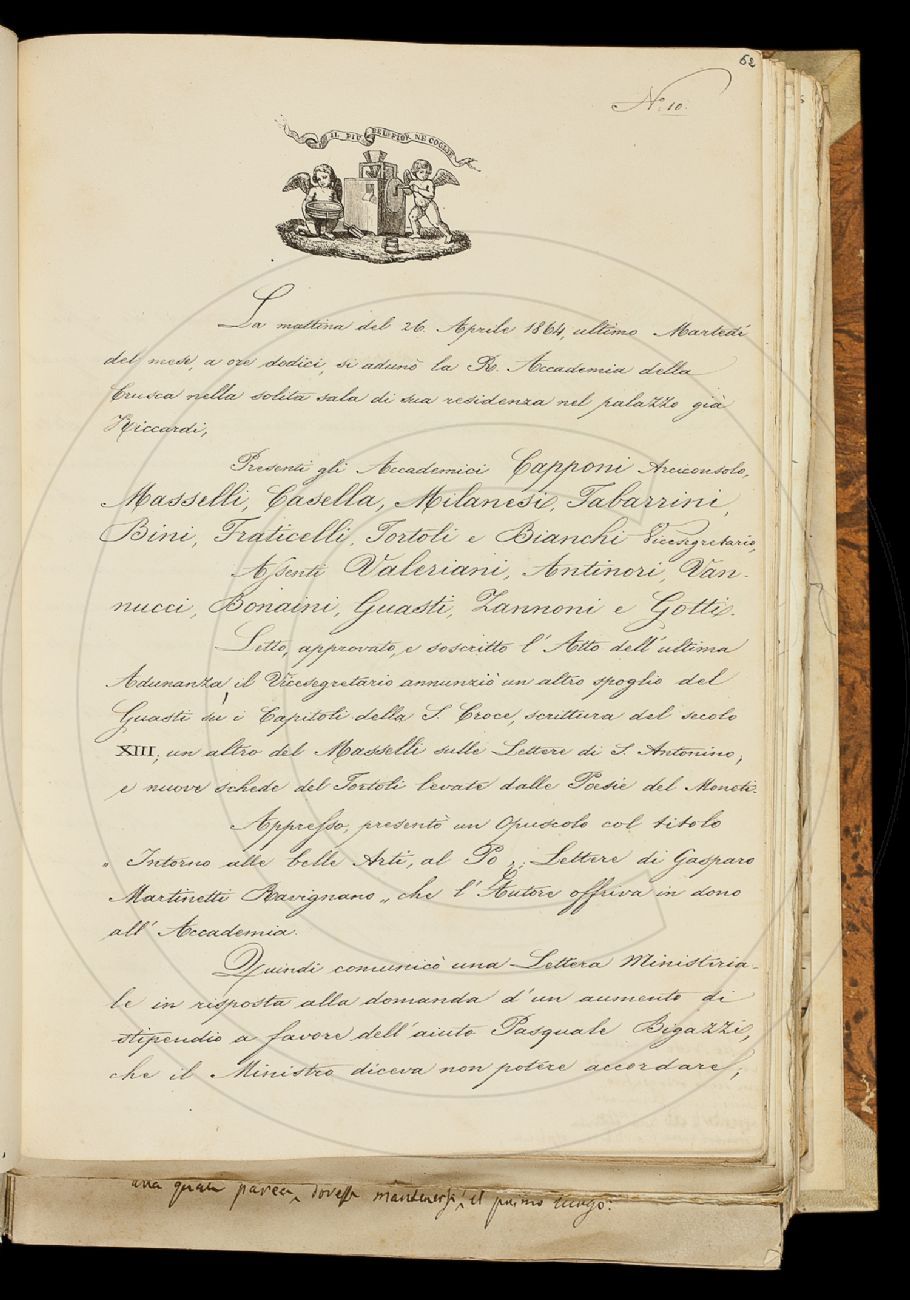 62
N.° 10.
IL PIÙ BEL FIOR NE COGLIE
La mattina del 26. Aprile 1864, ultimo Martedì
del mese, a ore dodici, si adunò la R. Accademia della
Crusca nella solita sala di sua residenza nel palazzo già
Riccardi,
Presenti gli Accademici Capponi Arciconsolo,
Masselli, Casella, Milanesi, Tabarrini,
Bini, Fraticelli, Tortoli e Bianchi Vicesegretario,
Assenti Valeriani, Antinori, Van-
nucci, Bonaini, Guasti, Zannoni e Gotti.
Letto, approvato, e soscritto l' Atto dell' ultima
Adunanza, il Vicesegretario annunziò un altro spoglio del
Guasti su i Capitoli della S. Croce, scrittura del secolo
XIII; un altro del Masselli sulle Lettere di S. Antonino;
e nuove schede del Tortoli levate dalle Poesie del Moneti.
Appresso, presentò un Opuscolo col titolo
„ Intorno alle belle Arti, al Po „: Lettere di Gasparo
Martinetti Ravignano „ che l' Autore offriva in dono
all' Accademia.
Quindi comunicò una Lettera Ministeria-
le in risposta alla domanda d' un aumento di
stipendio a favore dell' aiuto Pasquale Bigazzi,
che il Ministro diceva non potere accordare;
una parea, dovesse mantenersi il primo luogo: